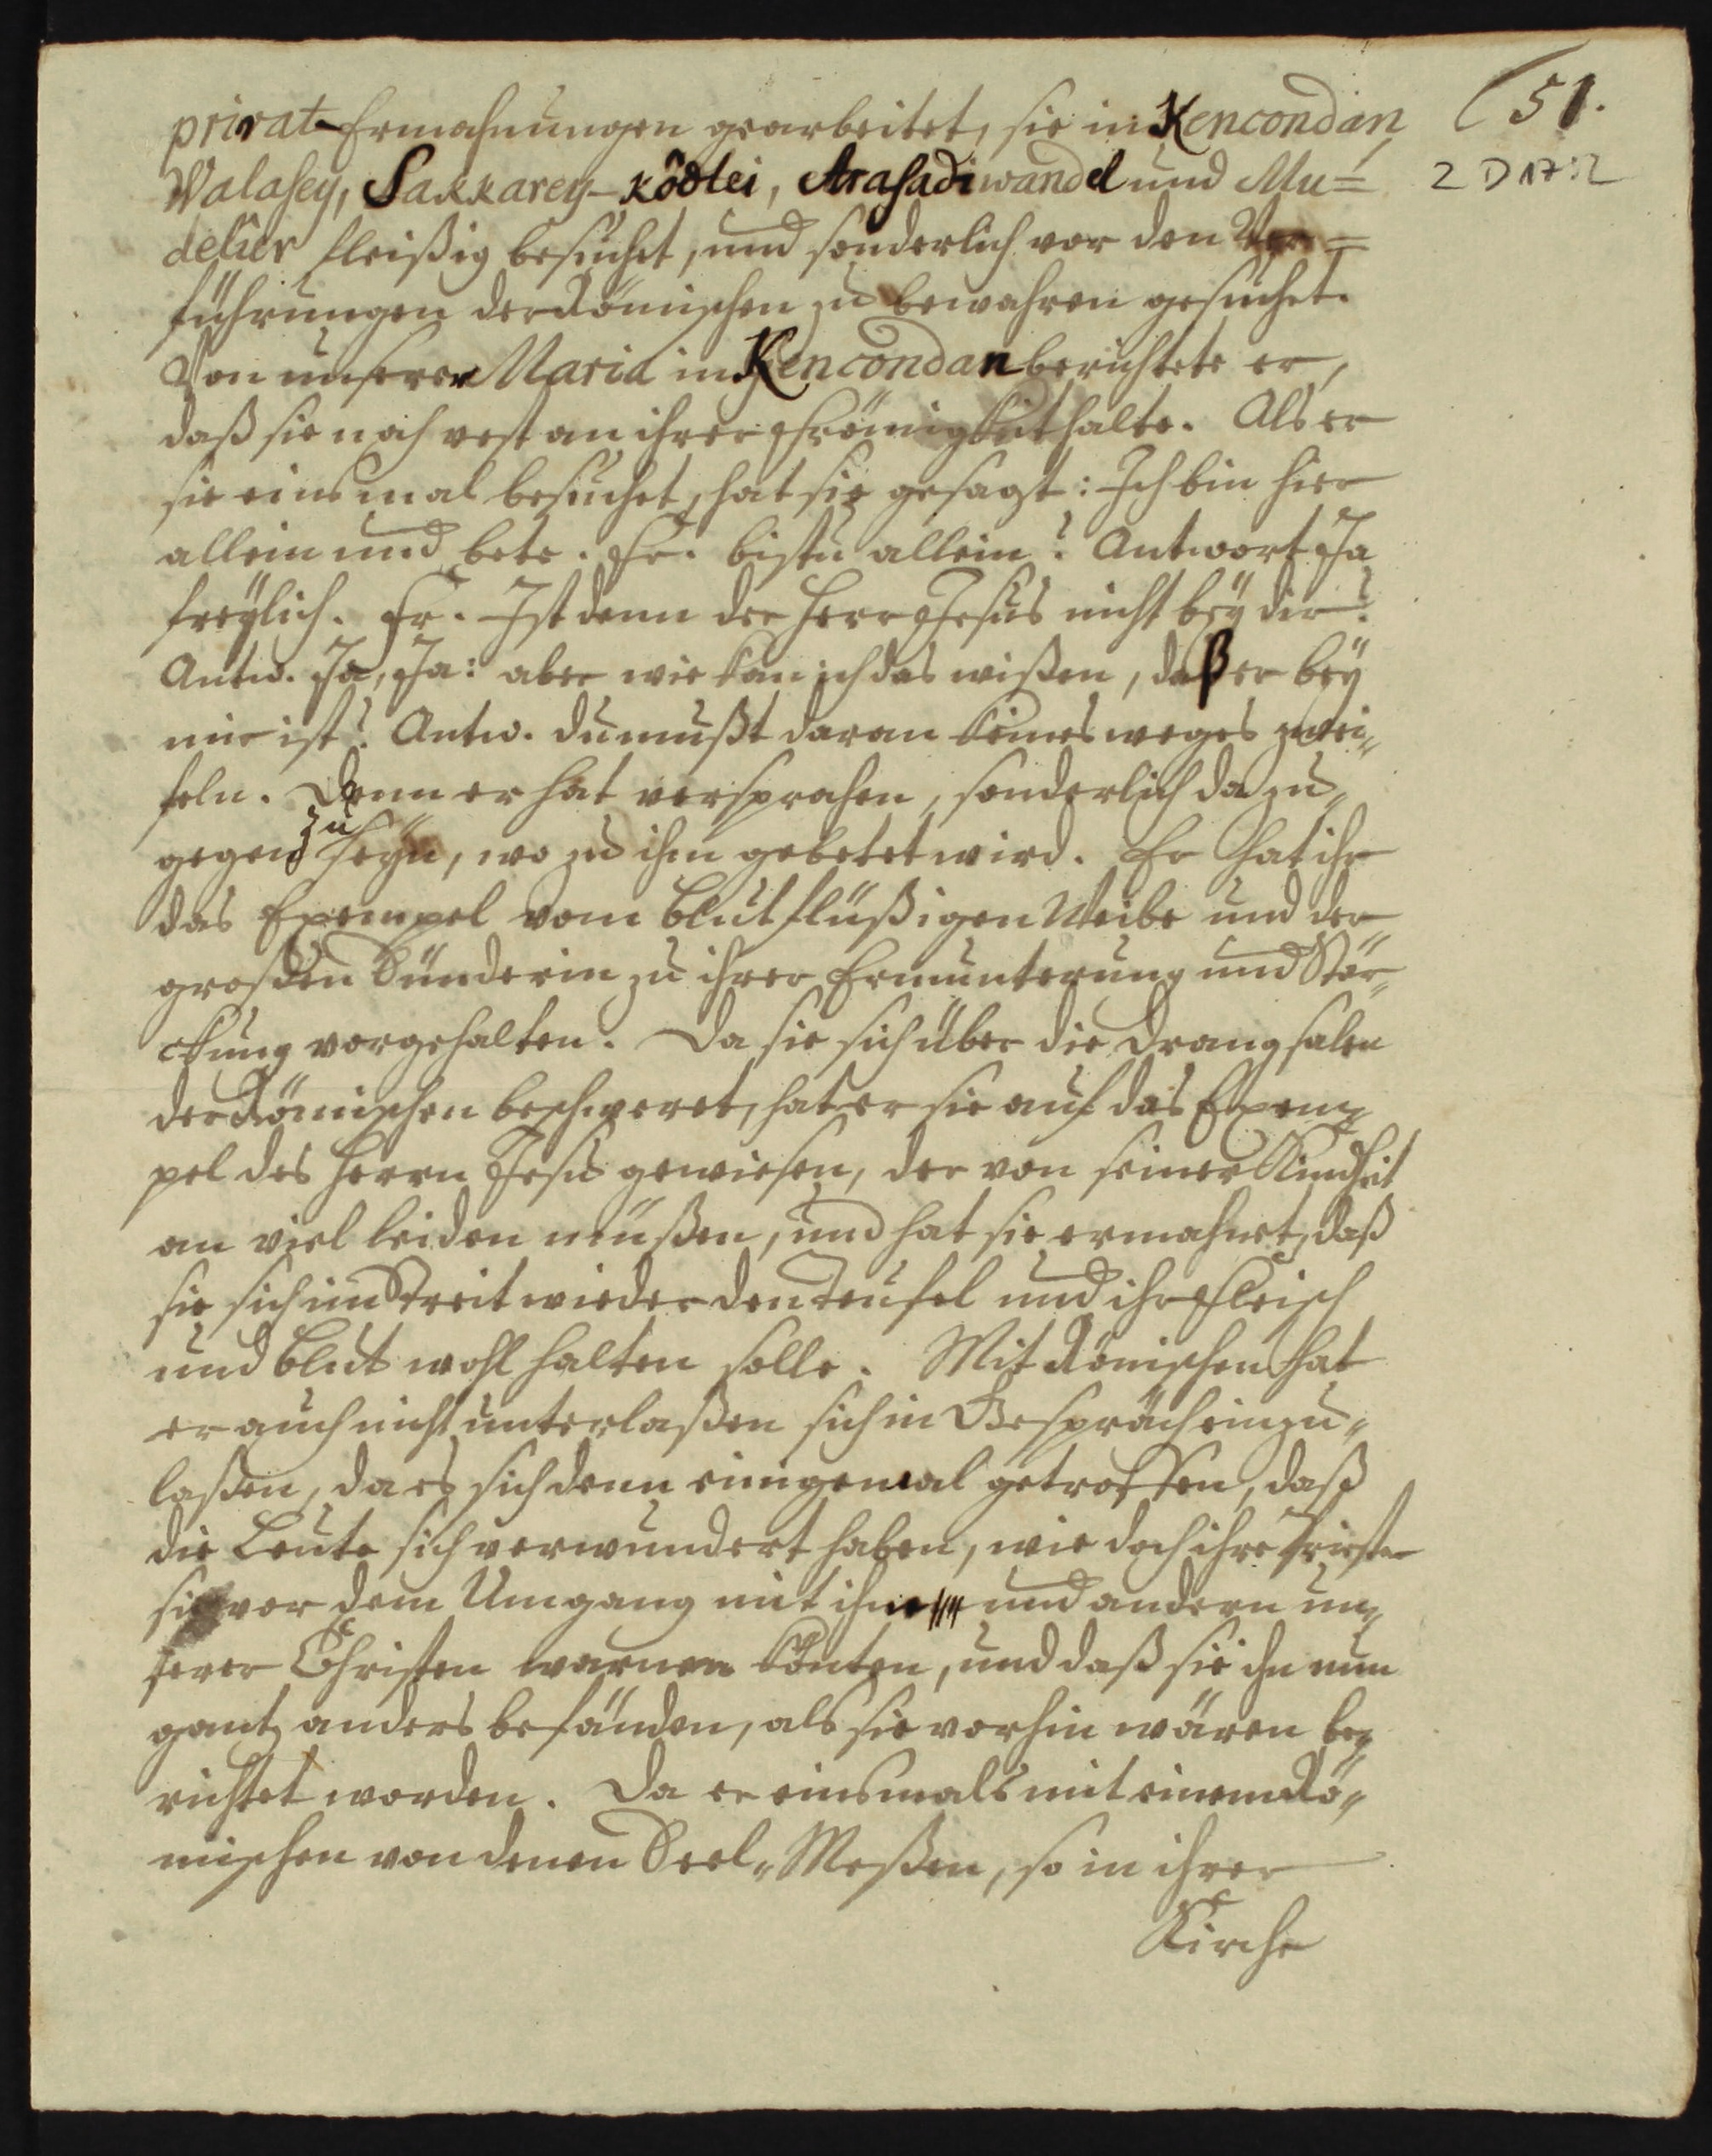 (51.
2 D 17:2
privat-Ermahnungen gearbeitet, sie in Kencondan,
Walasey, Sakkarey-Ködlei, Arasadiwandel und Mu=
delür fleißig besuchet, und sonderlich vor den Ver=
führungen der Römischen zu bewahren gesuchet.
Von unserer Maria in Kencondan berichtete er,
daß sie noch vest an ihrer Frömigkeit halte. Als er
sie einsmal besuchet, hat sie gesagt: Ich bin hier
allein und bete. Fr. bistu allein? Antwort Ja
freylich. Fr. Ist denn der Herr Jesus nicht bey dir?
Antw. Ja, Ja: aber wie kan ich das wißen, daß er bey
mir ist? Antw. du mußt daran keines weges zwei„
feln. Denn er hat versprochen, sonderlich da zu„
gegen zu seyn, wo zu ihm gebetet wird. Er hat ihr
das Exempel vom blutflüßigen Weibe und der
großen Sünderin zu ihrer Ermunterung und Stär„
ckung vorgehalten. Da sie sich über die Drangsalen
der Römischen beschweret, hat er sie auf das Exem„
pel des Herrn Jesu gewiesen, der von seiner Kindheit
an viel leiden müßen, und hat sie ermahnet, daß
sie sich im Streit wieder den Teufel und ihr Fleisch
und Blut wohl halten solle. Mit Römischen hat
er auch nicht unterlaßen sich in Gespräch einzu„
laßen, da es sich denn einigemal getroffen, daß
die Leute sich verwundert haben, wie doch ihre Priester
sie vor dem Umgang mit ihm und andern un„
serer Christen warnen könten, und daß sie ihn nun
gantz anders befänden, als sie vorhin wären be„
richtet worden. Da er einsmals mit einem Rö„
mischen von denen Seel„Meßen, so in ihrer
Kirche